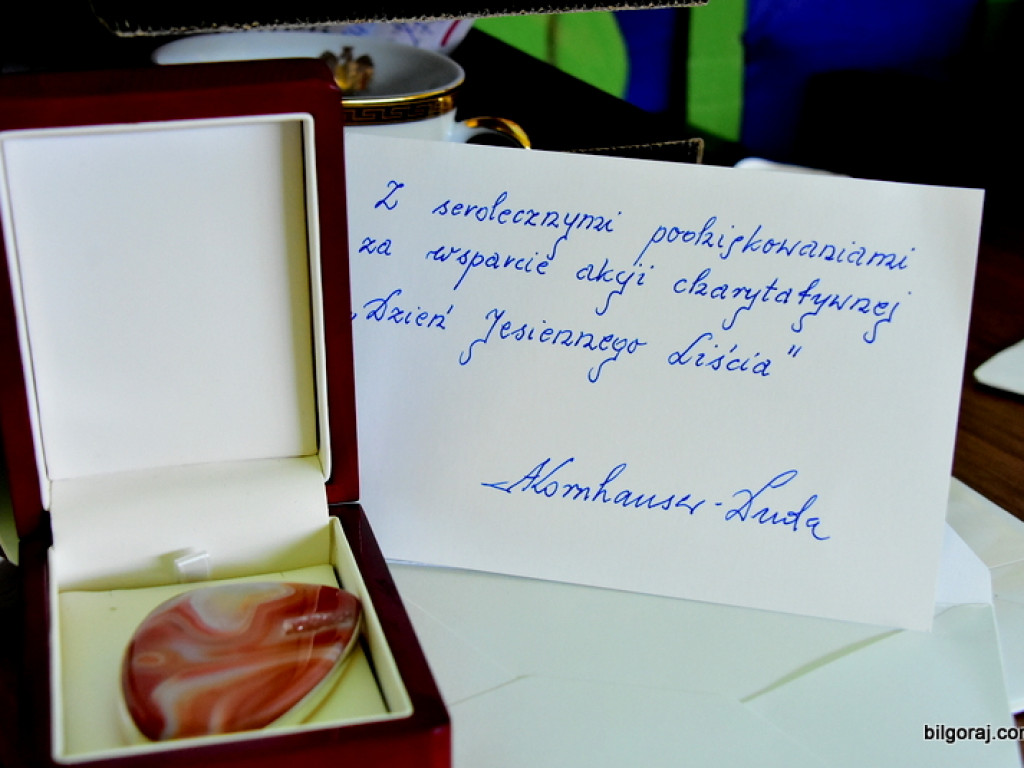 Z serdecznymi podziękowaniami
za wsparcie akcji charytatywnej
„Dzień Jesiennego Liścia"
AKornhauser-Duda
bilgoraj.com